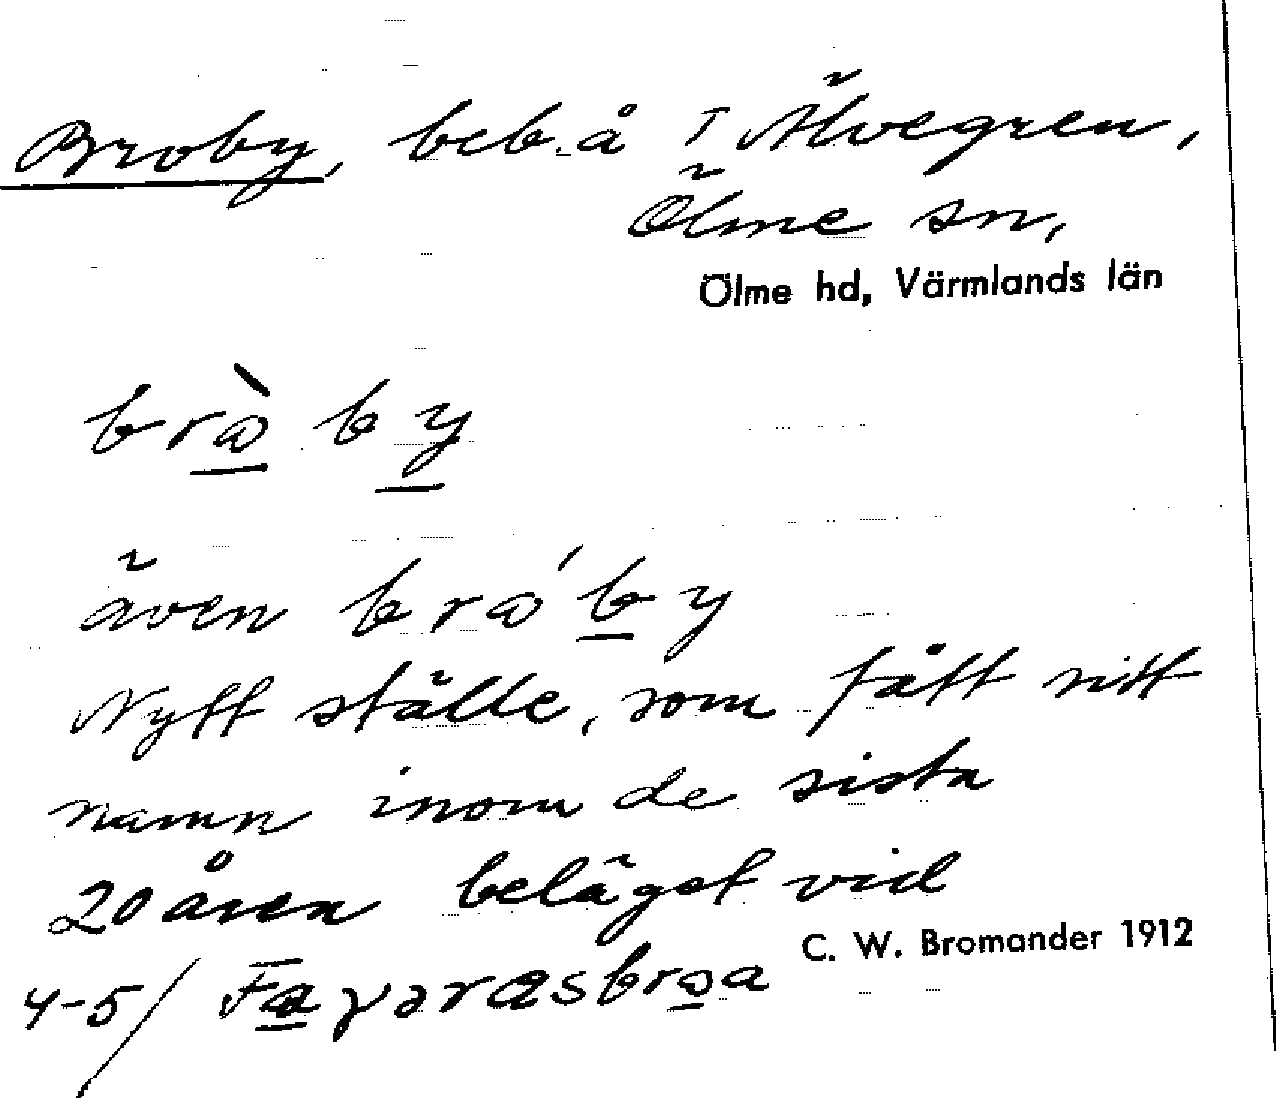 Broby, beb. å I Älvegren,
Ölme sn,
Ölme hd, Värmlands län
brò by
även bró by
Nytt ställe, som fått sitt
namn inom de sista
20 åren beläget vid
C. W. Bromander 1912
4-5/